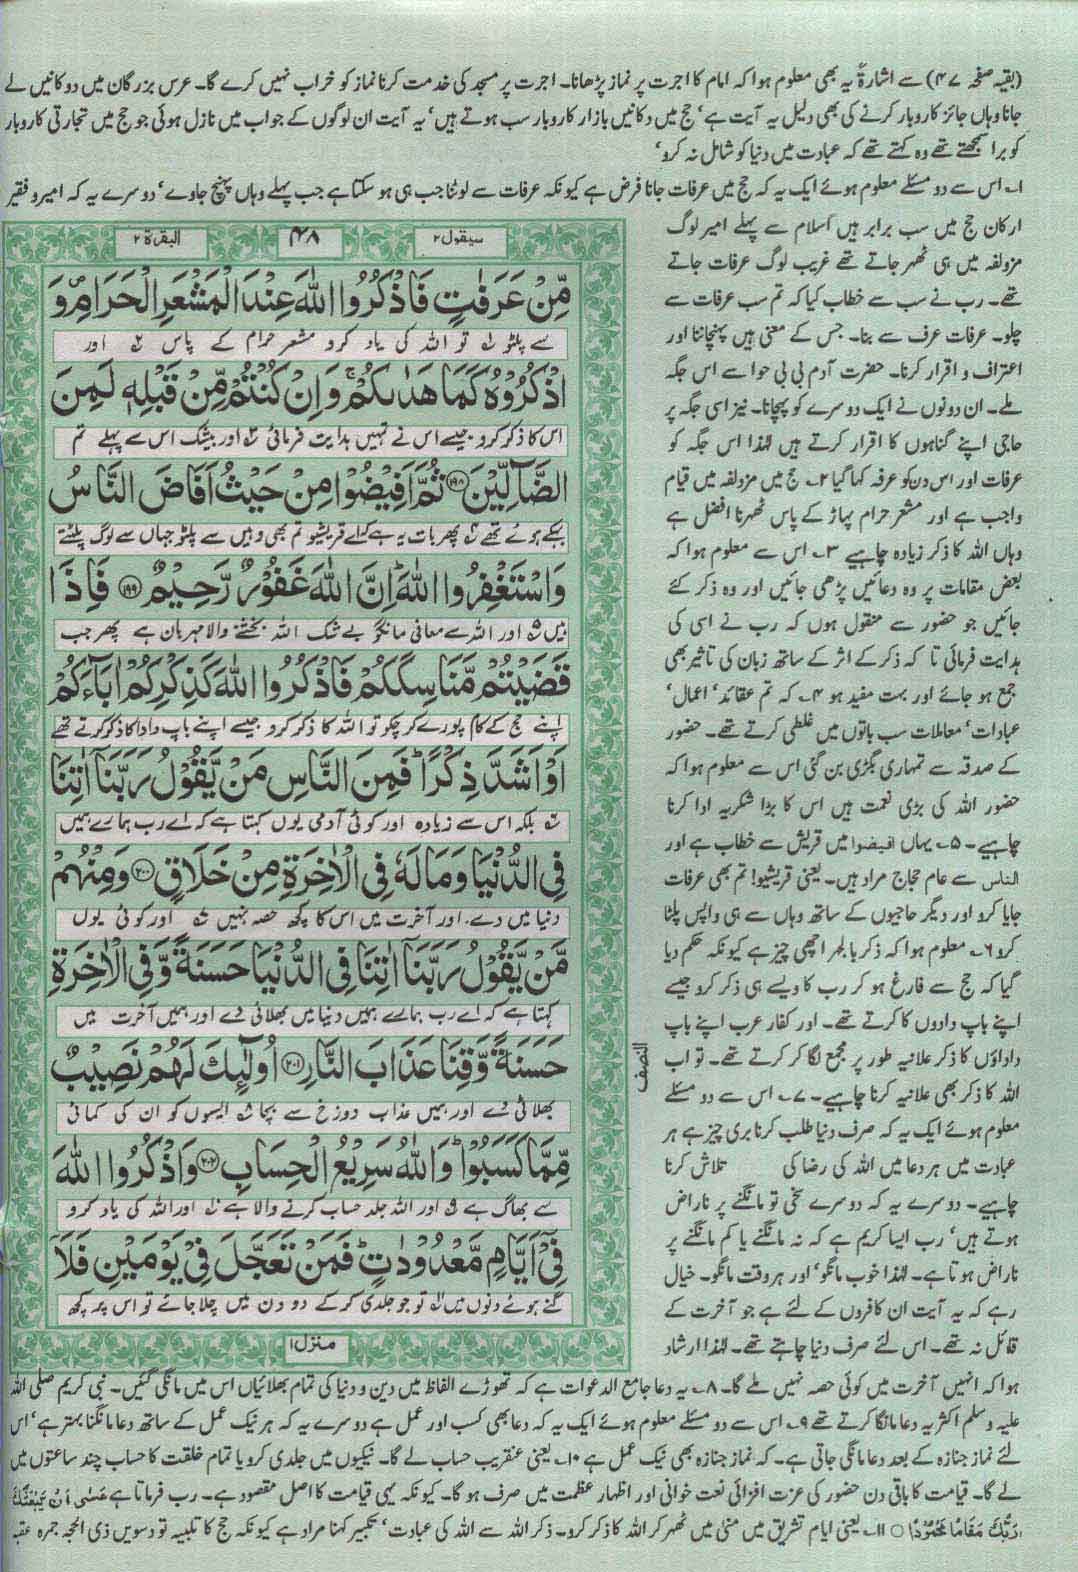 (بقیہ صفحہ ۴۷) سے اشارۃً یہ بھی معلوم ہوا کہ امام کا اجرت پر نماز پڑھانا۔ اجرت پر مسجد کی خدمت کرنا نماز کو خراب نہیں کرے گا۔ عرس بزرگان میں دوکانیں لے
جانا وہاں جائز کاروبار کرنے کی بھی دلیل یہ آیت ہے، حج میں دکانیں بازار کاروبار سب ہوتے ہیں، یہ آیت ان لوگوں کے جواب میں نازل ہوئی جو حج میں تجارتی کاروبار
کو برا سمجھتے تھے وہ کہتے تھے کہ عبادت میں دنیا کو شامل نہ کرو،
۱۔ اس سے دو مسئلے معلوم ہوئے ایک یہ کہ حج میں عرفات جانا فرض ہے کیونکہ عرفات سے لوٹنا جب ہی ہو سکتا ہے جب پہلے وہاں پہنچ جاوے، دوسرے یہ کہ امیر و فقیر
ارکان حج میں سب برابر ہیں اسلام سے پہلے امیر لوگ
مزدلفہ میں ہی ٹھہر جاتے تھے غریب لوگ عرفات جاتے
تھے۔ رب نے سب سے خطاب کیا کہ تم سب عرفات سے
چلو۔ عرفات عرف سے بنا۔ جس کے معنی ہیں پہنچاننا اور
اعتراف و اقرار کرنا۔ حضرت آدم بی بی حوا سے اس جگہ
ملے۔ ان دونوں نے ایک دوسرے کو پہچانا۔ نیز اسی جگہ پر
حاجی اپنے گناہوں کا اقرار کرتے ہیں لہٰذا اس جگہ کو
عرفات اور اس دن کو عرفہ کہا گیا ۲۔ حج میں مزدلفہ میں قیام
واجب ہے اور مشعر حرام پہاڑ کے پاس ٹھہرنا افضل ہے
وہاں اللہ کا ذکر زیادہ چاہیے ۳۔ اس سے معلوم ہوا کہ
بعض مقامات پر وہ دعائیں پڑھی جائیں اور وہ ذکر کئے
جائیں جو حضور سے منقول ہوں کہ رب نے اسی کی
ہدایت فرمائی تا کہ ذکر کے اثر کے ساتھ زبان کی تاثیر بھی
جمع ہو جائے اور بہت مفید ہو ۴۔ کہ تم عقائد، اعمال،
عبادات، معاملات سب باتوں میں غلطی کرتے تھے۔ حضور
کے صدقہ سے تمہاری بگڑی بن گئی اس سے معلوم ہوا کہ
حضور اللہ کی بڑی نعمت ہیں اس کا بڑا شکریہ ادا کرنا
چاہیے۔ ۵۔ یہاں افیضوا میں قریش سے خطاب ہے اور
الناس سے عام حجاج مراد ہیں۔ یعنی قریشیو! تم بھی عرفات
جایا کرو اور دیگر حاجیوں کے ساتھ وہاں سے ہی واپس پلٹا
کرو ۶۔ معلوم ہوا کہ ذکر بالجہر اچھی چیز ہے کیونکہ حکم دیا
گیا کہ حج سے فارغ ہو کر رب کا ویسے ہی ذکر کرو جیسے
اپنے باپ دادوں کا کرتے تھے۔ اور کفار عرب اپنے باپ
داداؤں کا ذکر علانیہ طور پر مجمع لگا کر کرتے تھے۔ تو اب
اللہ کا ذکر بھی علانیہ کرنا چاہیے۔ ۷۔ اس سے دو مسئلے
معلوم ہوئے ایک یہ کہ صرف دنیا طلب کرنا بری چیز ہے ہر
عبادت میں ہر دعا میں اللہ کی رضا کی تلاش کرنا
چاہیے۔ دوسرے یہ کہ دوسرے سخی تو مانگنے پر ناراض
ہوتے ہیں، رب ایسا کریم ہے کہ نہ مانگنے یا کم مانگنے پر
ناراض ہوتا ہے۔ لہٰذا خوب مانگو، اور ہر وقت مانگو۔ خیال
رہے کہ یہ آیت ان کافروں کے لئے ہے جو آخرت کے
قائل نہ تھے۔ اس لئے صرف دنیا چاہتے تھے۔ لہٰذا ارشاد
سیقول ۲
۴۸
البقرۃ ۲
مِّنْ عَرَفٰتٍ فَاذْكُرُوا اللّٰهَ عِنْدَ الْمَشْعَرِ الْحَرَامِ ۪ وَ
سے پلٹو ۱ تو اللہ کی یاد کرو مشعر حرام کے پاس ۲ اور
اذْكُرُوْهُ كَمَا هَدٰىكُمْ ۚ وَاِنْ كُنْتُمْ مِّنْ قَبْلِهٖ لَمِنَ
اس کا ذکر کرو جیسے اس نے تمہیں ہدایت فرمائی ۳ اور بیشک اس سے پہلے تم
الضَّآلِّيْنَ ۝۱۹۸ ثُمَّ اَفِيْضُوْا مِنْ حَيْثُ اَفَاضَ النَّاسُ
بہکے ہوئے تھے ۴ پھر بات یہ ہے کہ اے قریشیو تم بھی وہیں سے پلٹو جہاں سے لوگ پلٹتے
وَاسْتَغْفِرُوا اللّٰهَ ؕ اِنَّ اللّٰهَ غَفُوْرٌ رَّحِيْمٌ ۝۱۹۹ فَاِذَا
ہیں ۵ اور اللہ سے معافی مانگو بے شک اللہ بخشنے والا مہربان ہے پھر جب
قَضَيْتُمْ مَّنَاسِكَكُمْ فَاذْكُرُوا اللّٰهَ كَذِكْرِكُمْ اٰبَآءَكُمْ
اپنے حج کے کام پورے کر چکو تو اللہ کا ذکر کرو جیسے اپنے باپ دادا کا ذکر کرتے تھے
اَوْ اَشَدَّ ذِكْرًا ؕ فَمِنَ النَّاسِ مَنْ يَّقُوْلُ رَبَّنَآ اٰتِنَا
۶ بلکہ اس سے زیادہ اور کوئی آدمی یوں کہتا ہے کہ اے رب ہمارے ہمیں
فِي الدُّنْيَا وَمَا لَهٗ فِي الْاٰخِرَةِ مِنْ خَلَاقٍ ۝۲۰۰ وَمِنْهُمْ
دنیا میں دے۔ اور آخرت میں اس کا کچھ حصہ نہیں ۷ اور کوئی یوں
مَّنْ يَّقُوْلُ رَبَّنَآ اٰتِنَا فِي الدُّنْيَا حَسَنَةً وَّفِي الْاٰخِرَةِ
کہتا ہے کہ اے رب ہمارے ہمیں دنیا میں بھلائی دے اور ہمیں آخرت میں
حَسَنَةً وَّقِنَا عَذَابَ النَّارِ ۝۲۰۱ اُولٰٓئِكَ لَهُمْ نَصِيْبٌ
بھلائی دے اور ہمیں عذاب دوزخ سے بچا ۸ ایسوں کو ان کی کمائی
مِّمَّا كَسَبُوْا ؕ وَاللّٰهُ سَرِيْعُ الْحِسَابِ ۝۲۰۲ وَاذْكُرُوا اللّٰهَ
سے بھاگ ہے ۹ اور اللہ جلد حساب کرنے والا ہے ۱۰ اور اللہ کی یاد کرو
فِيْٓ اَيَّامٍ مَّعْدُوْدٰتٍ ؕ فَمَنْ تَعَجَّلَ فِيْ يَوْمَيْنِ فَلَآ
گنے ہوئے دنوں میں ۱۱ تو جو جلدی کر کے دو دن میں چلا جائے تو اس پر کچھ
منزل ۱
النصف
ہوا کہ انہیں آخرت میں کوئی حصہ نہیں ملے گا۔ ۸۔ یہ دعا جامع الدعوات ہے کہ تھوڑے الفاظ میں دین و دنیا کی تمام بھلائیاں اس میں مانگی گئیں۔ نبی کریم صلی اللہ
علیہ وسلم اکثر یہ دعا مانگا کرتے تھے ۹۔ اس سے دو مسئلے معلوم ہوئے ایک یہ کہ دعا بھی کسب اور عمل ہے دوسرے یہ کہ ہر نیک عمل کے ساتھ دعا مانگنا بہتر ہے، اس
لئے نماز جنازہ کے بعد دعا مانگی جاتی ہے۔ کہ نماز جنازہ بھی نیک عمل ہے ۱۰۔ یعنی عنقریب حساب لے گا۔ نیکیوں میں جلدی کرو یا تمام خلقت کا حساب چند ساعتوں میں
لے گا۔ قیامت کا باقی دن حضور کی عزت افزائی نعت خوانی اور اظہار عظمت میں صرف ہو گا۔ کیونکہ یہی قیامت کا اصل مقصود ہے۔ رب فرماتا ہے عَسٰى اَنْ يَّبْعَثَكَ
رَبُّكَ مَقَامًا مَّحْمُوْدًا ○ ۱۱۔ یعنی ایام تشریق میں منیٰ میں ٹھہر کر اللہ کا ذکر کرو۔ ذکر اللہ سے اللہ کی عبادت، تکبیر کہنا مراد ہے کیونکہ حج کا تلبیہ تو دسویں ذی الحجہ جمرہ عقبہ